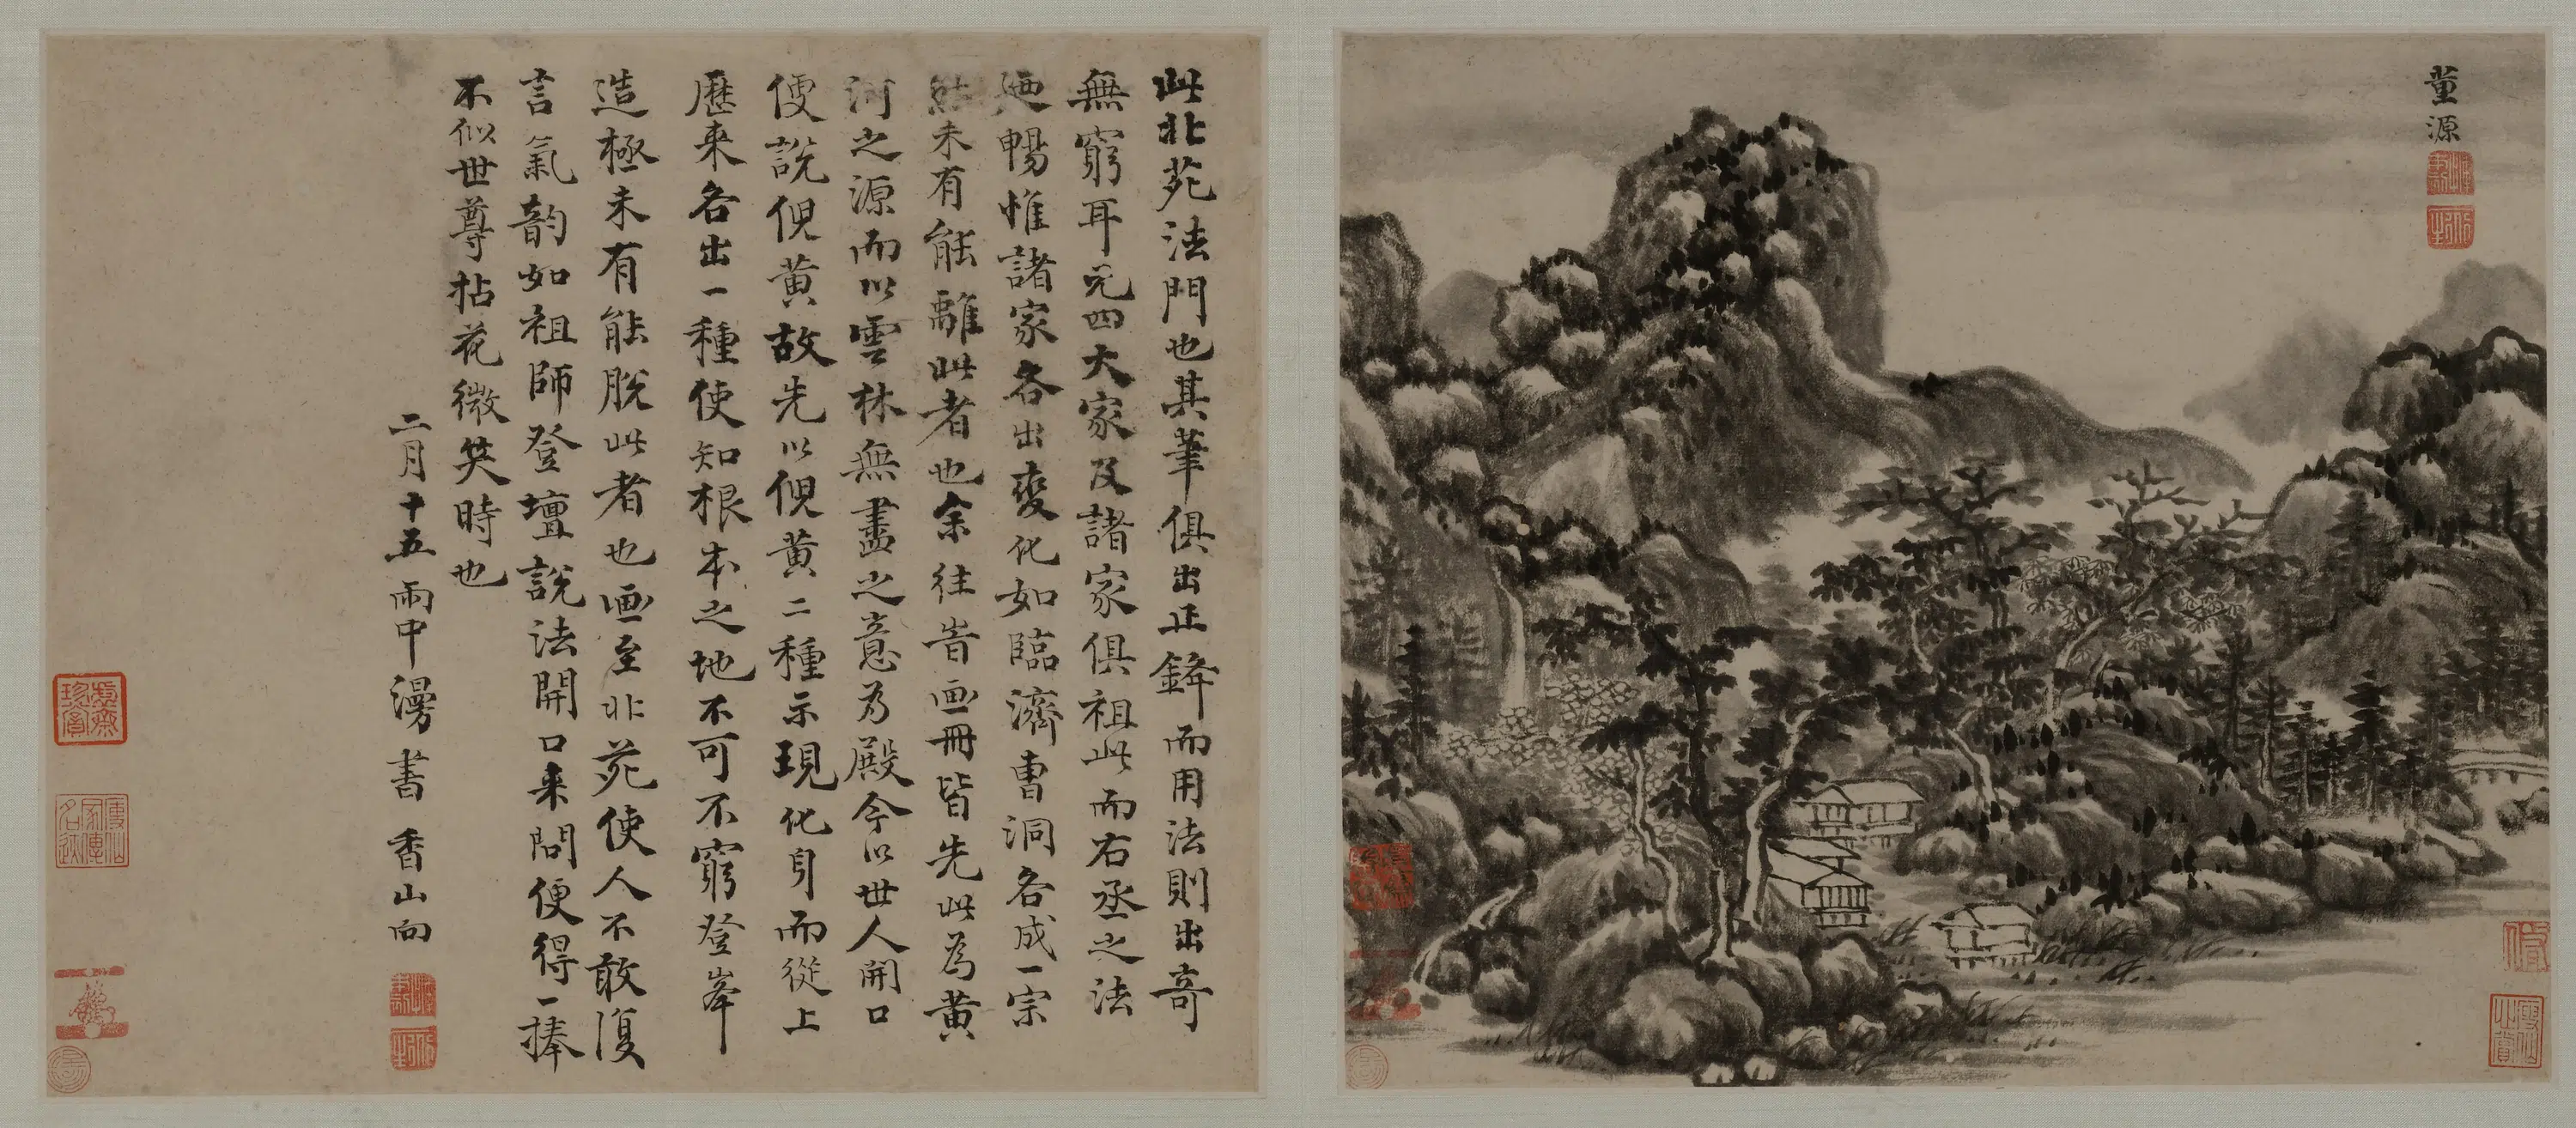 董源
此北苑法門也其筆俱出正鋒而用法則出奇
無窮耳元四大家及諸家俱祖此而右丞之法
廼暢惟諸家各出變化如臨濟曹洞各成一宗
然未有能離此者也余往昔画冊皆先此為黃
河之源而以雲林無盡之意為殿今以世人開口
便說倪黃故先以倪黃二種示現化身而從上
歷來各出一種使知根本之地不可不窮登峯
造極未有能脫此者也画至北苑使人不敢復
言氣韵如祖師登壇說法開口来問便得一捧
不似世尊拈花微笑時也
二月十五雨中漫書 香山向